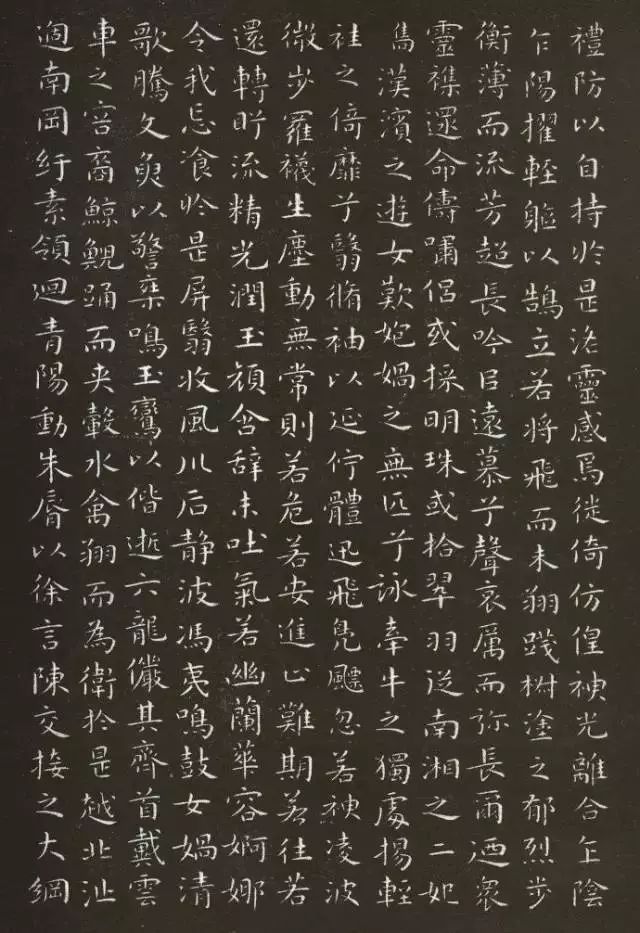 禮防以自持於是洛靈感焉徙倚仿偟神光離合乍陰
乍陽擢輕軀以鵠立若將飛而未翔踐椒塗之郁烈步
衡薄而流芳超長吟以遠慕兮聲哀厲而弥長爾迺衆
靈襍遝命儔嘯侶或採明珠或拾翠羽從南湘之二妃
雋漢濱之遊女歎炮媧之無匹兮詠牽牛之獨處揚輕
袿之倚靡兮翳脩袖以延佇體迅飛鳧飄忽若神凌波
微步羅襪生塵動無常則若危若安進止難期若往若
還轉眄流精光潤玉顏含辭未吐氣若幽蘭華容婀娜
令我忘飡於是屏翳收風川后静波馮夷鳴鼓女媧清
歌騰文魚以警椉鳴玉鸞以偕逝六龍儼其齊首戴雲
車之容裔鯨鯢踊而夾轂水禽翔而為衛於是越北沚
過南岡紆素領迴青陽動朱脣以徐言陳交接之大綱